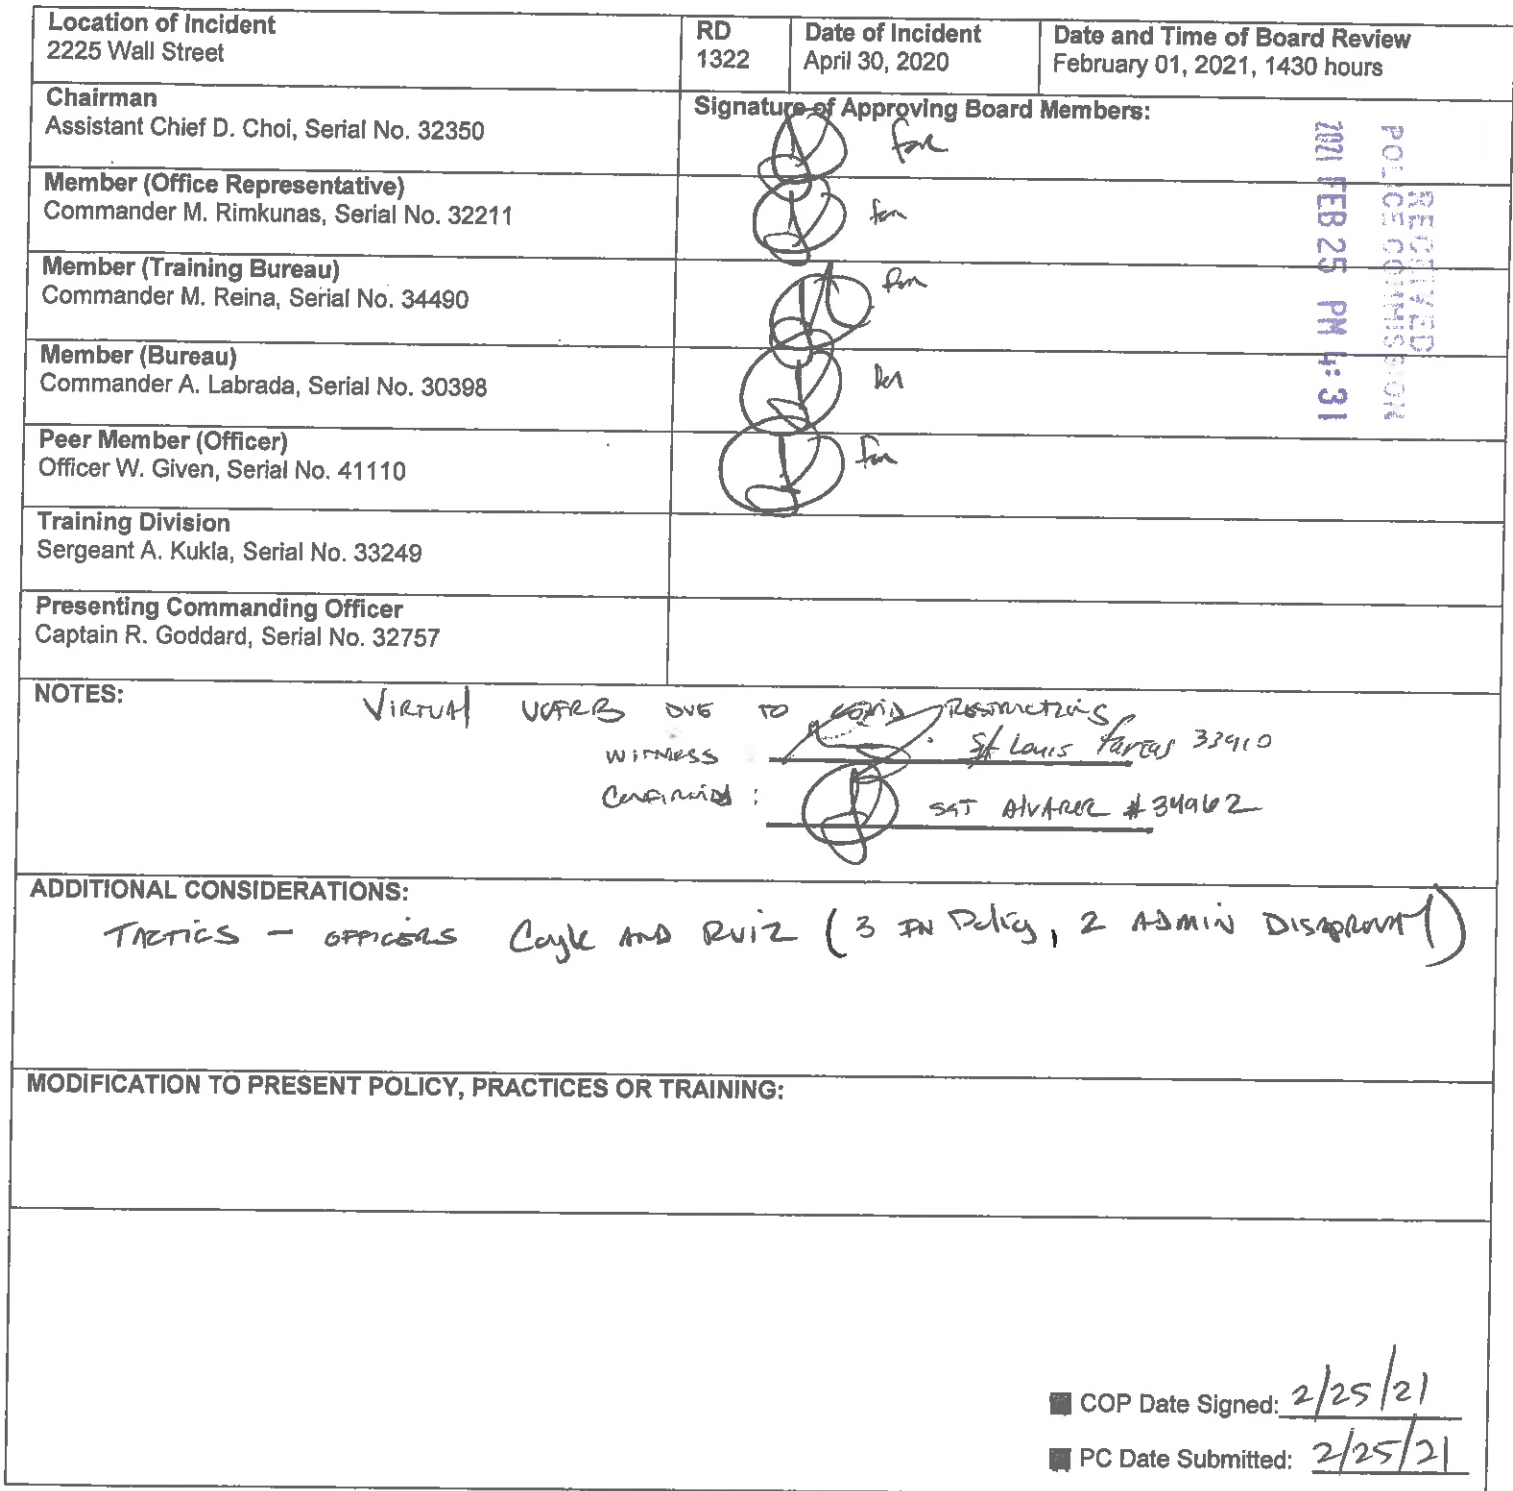 Location of Incident
2225 Wall Street
RD
1322
Date of Incident
April 30, 2020
Date and Time of Board Review
February 01, 2021, 1430 hours
Chairman
Assistant Chief D. Choi, Serial No. 32350
Signature of Approving Board Members:
for
Member (Office Representative)
Commander M. Rimkunas, Serial No. 32211
for
Member (Training Bureau)
Commander M. Reina, Serial No. 34490
for
Member (Bureau)
Commander A. Labrada, Serial No. 30398
for
Peer Member (Officer)
Officer W. Given, Serial No. 41110
for
RECEIVED
POLICE COMMISSION
2021 FEB 25 PM 4:31
Training Division
Sergeant A. Kukla, Serial No. 33249
Presenting Commanding Officer
Captain R. Goddard, Serial No. 32757
NOTES:
VIRTUAL UOFRB DUE TO COVID RESTRICTIONS
WITNESS Louis 33910
CONFIRMING: SGT ALVAREZ #34962
ADDITIONAL CONSIDERATIONS:
TACTICS - OFFICERS Coyle AND RUIZ (3 IN Policy, 2 ADMIN DISAPPROVAL)
MODIFICATION TO PRESENT POLICY, PRACTICES OR TRAINING:
COP Date Signed: 2/25/21
PC Date Submitted: 2/25/21